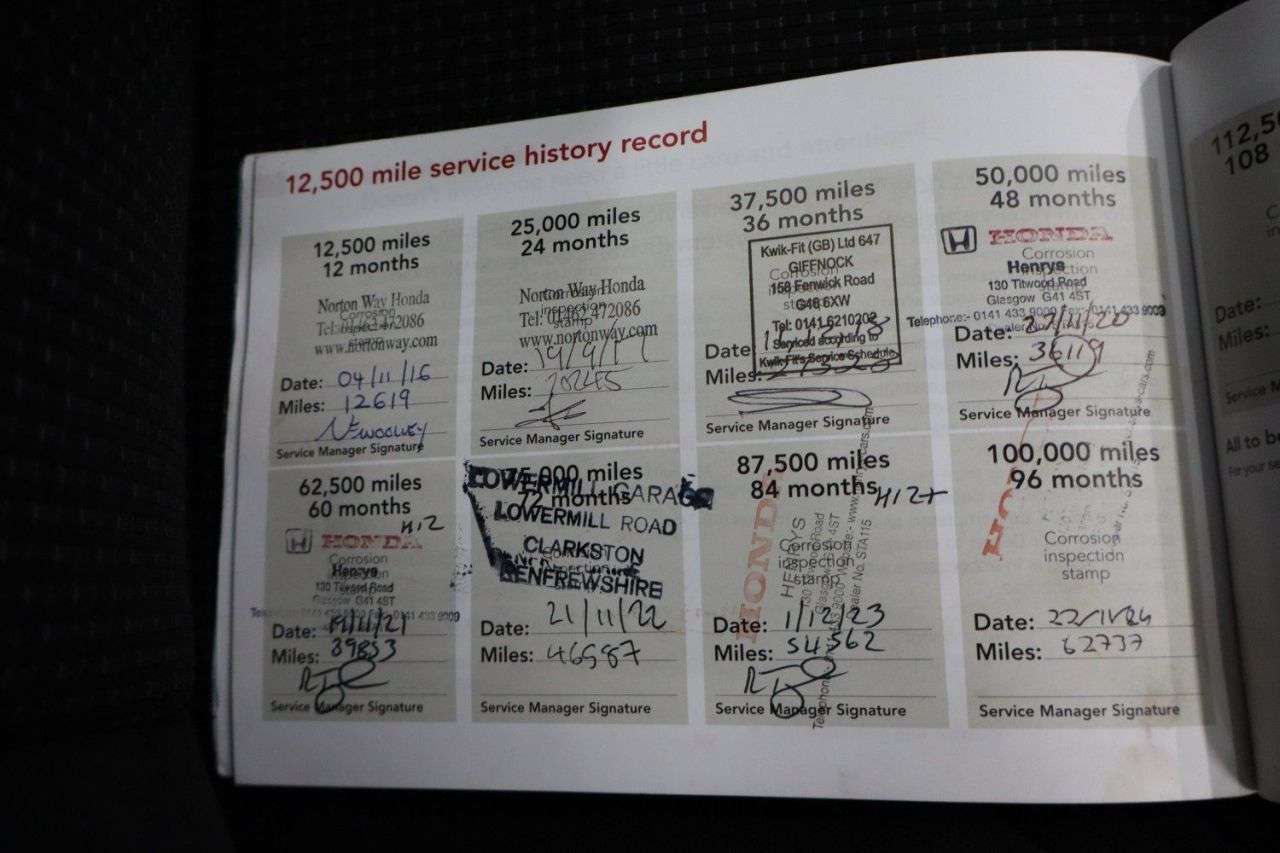 12,500 mile service history record
12,500 miles
12 months
Norton Way Honda
Tel: 01462 472086
Corrosion
inspection
stamp
www.nortonway.com
Date: 04/11/16
Miles: 12619
Service Manager Signature
25,000 miles
24 months
Norton Way Honda
Corrosion
inspection
Tel: 01462 472086
stamp
www.nortonway.com
Date: 19/9/17
Miles: 20245
Service Manager Signature
37,500 miles
36 months
Kwik-Fit (GB) Ltd 647
GIFFNOCK
Corrosion
158 Fenwick Road
G46 6XW
Tel: 0141 6210202
Serviced according to
Kwik-Fit's Service Schedule
Date:
Miles:
Service Manager Signature
50,000 miles
48 months
HONDA
Corrosion
Henrys
inspection
130 Titwood Road
Glasgow G41 4ST
Telephone:- 0141 433 9000 Fax:- 0141 433 9003
Date:
Miles: 36119
Service Manager Signature
62,500 miles
60 months
H12
HONDA
Corrosion
Henrys
130 Titwood Road
Glasgow G41 4ST
Date:
Miles: 39853
Service Manager Signature
75,000 miles
72 months
LOWERMILL GARAGE
LOWERMILL ROAD
CLARKSTON
RENFREWSHIRE
Date: 21/11/22
Miles: 46587
Service Manager Signature
87,500 miles
84 months
H12+
HONDA
HENRYS
Corrosion
inspection
stamp
Dealer No. STA115
Date: 1/12/23
Miles: 54562
Service Manager Signature
100,000 miles
96 months
Corrosion
inspection
stamp
Date: 22/11/24
Miles: 62737
Service Manager Signature
108
Date:
Miles: